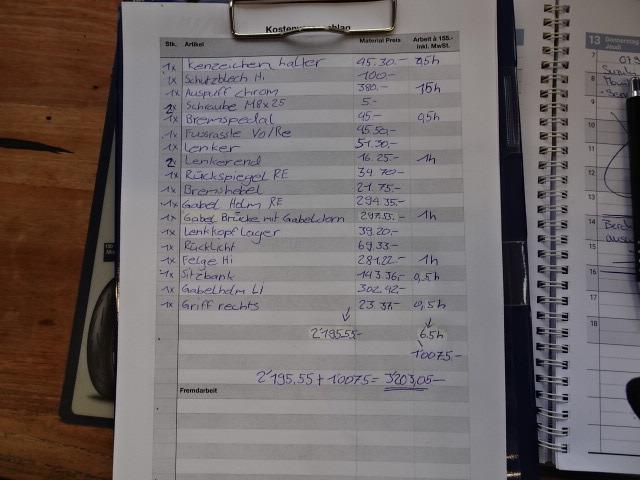 Stk. Artikel Material Preis Arbeit à 155.- inkl. MwSt.
1x Kenzeichen halter 45.30.- 0,5h
1x Schutzblech Hi 100.-
1x Auspuff chrom 380.- 15h
2x Schraube M8x25 5.-
1x Bremspedal 45.- 0,5h
1x Fussrasste Vo/Re 45.50.-
1x Lenker 51.30.-
2x Lenkerend 16.25.- 1h
1x Rückspiegel RE 34.70.-
1x Bremshebel 21.75.-
1x Gabel Holm RE 294.35.-
1x Gabel Brücke mit Gabeldorn 1h
1x Lenkkopflager 39.20.-
1x Rücklicht 69.33.-
1x Felge Hi 281.22.- 1h
1x Sitzbank 143.36.- 0,5h
1x Gabelholm LI 302.42.-
1x Griff rechts 23.37.- 0,5h
2'195.55.- 6.5h
1'007.5.-
2'195.55 + 1'007.5 = 3'203.05.-
Fremdarbeit
13 Donnerstag
Jeudi
7
8
9
12
13
14
15
16
17
18